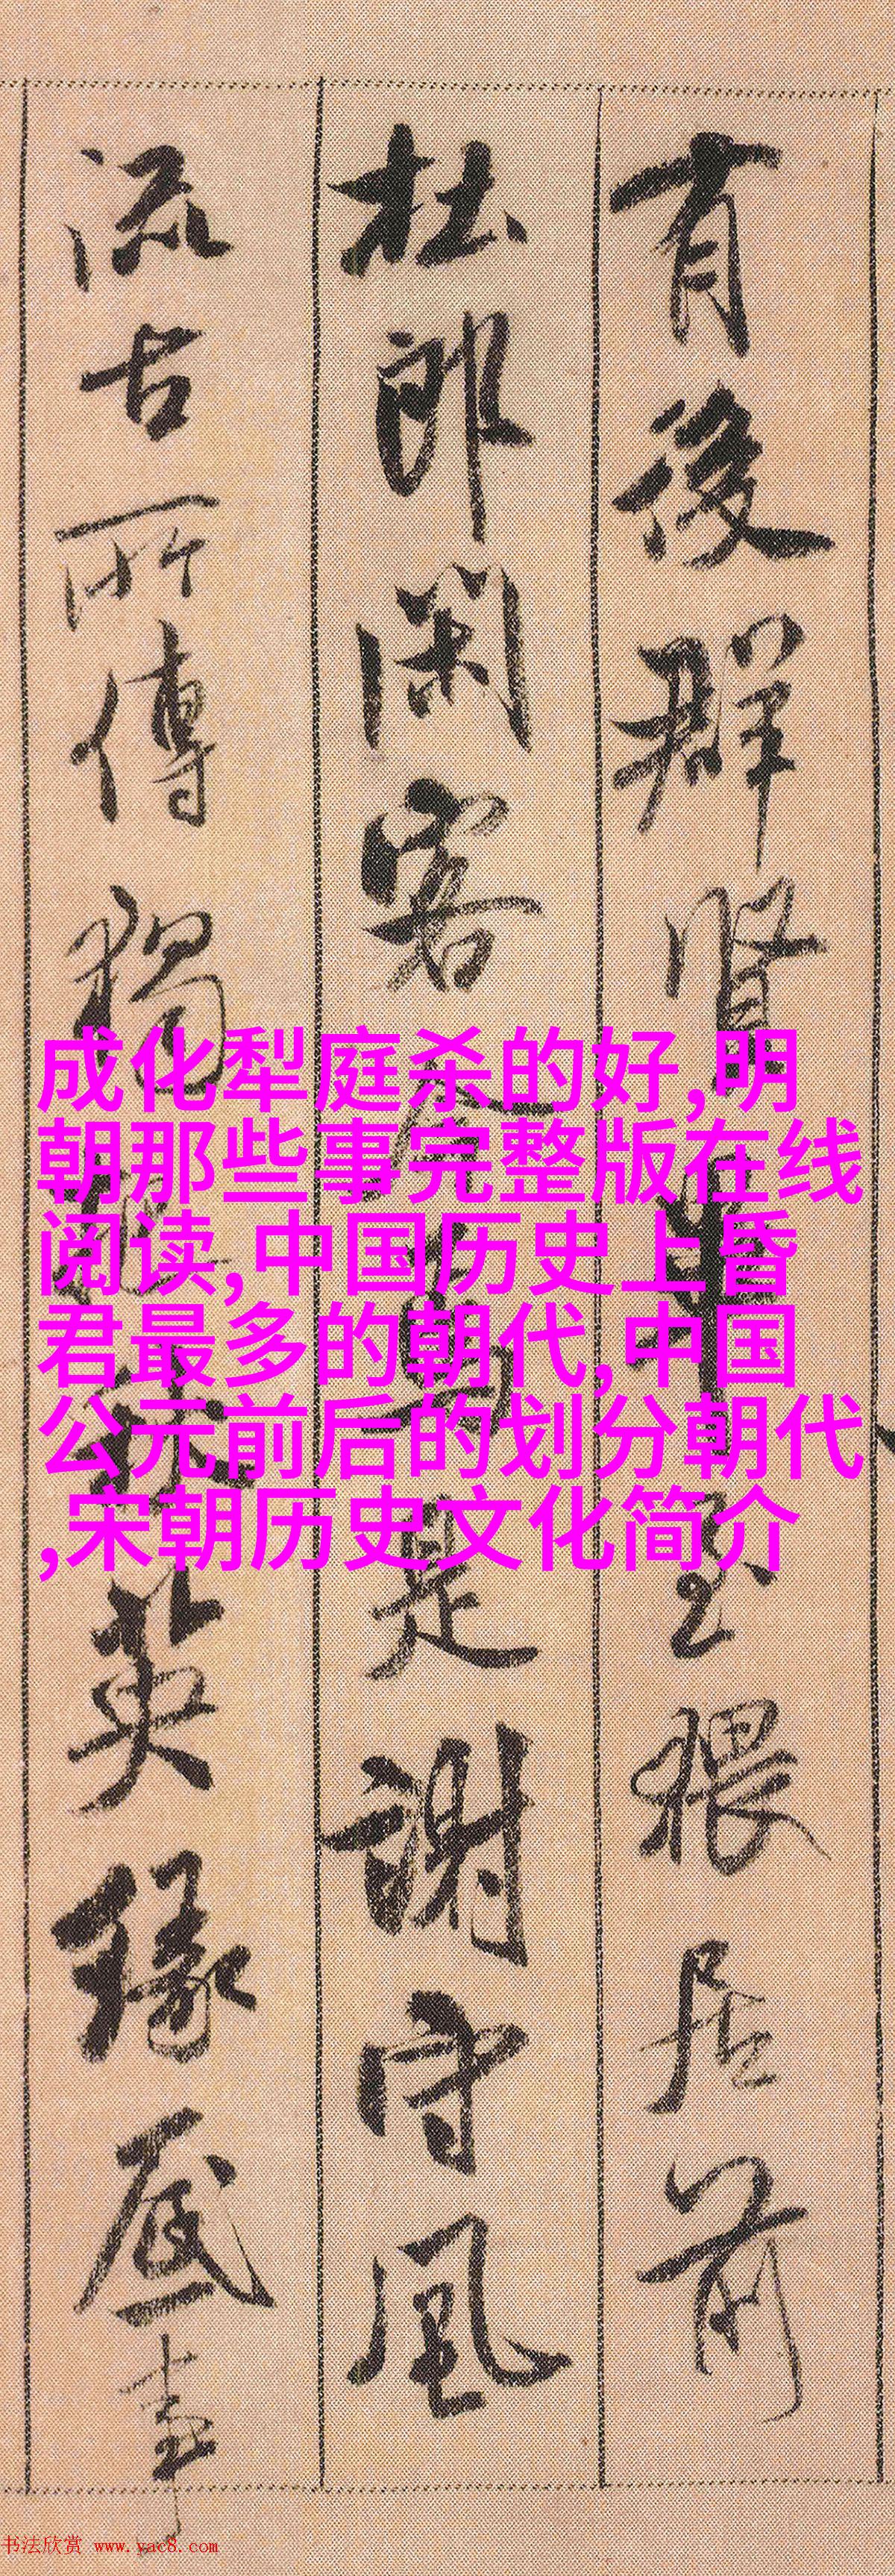 有後群賢畢至猥居前
杜郎閑客今焉是謝守風
流古所傳獨把秋英緣底事
成化犁庭杀的好,明
朝那些事完整版在线
阅读,中国历史上昏
君最多的朝代,中国
公元前后的划分朝代
,宋朝历史文化简介
书法欣赏 www.yac8.com